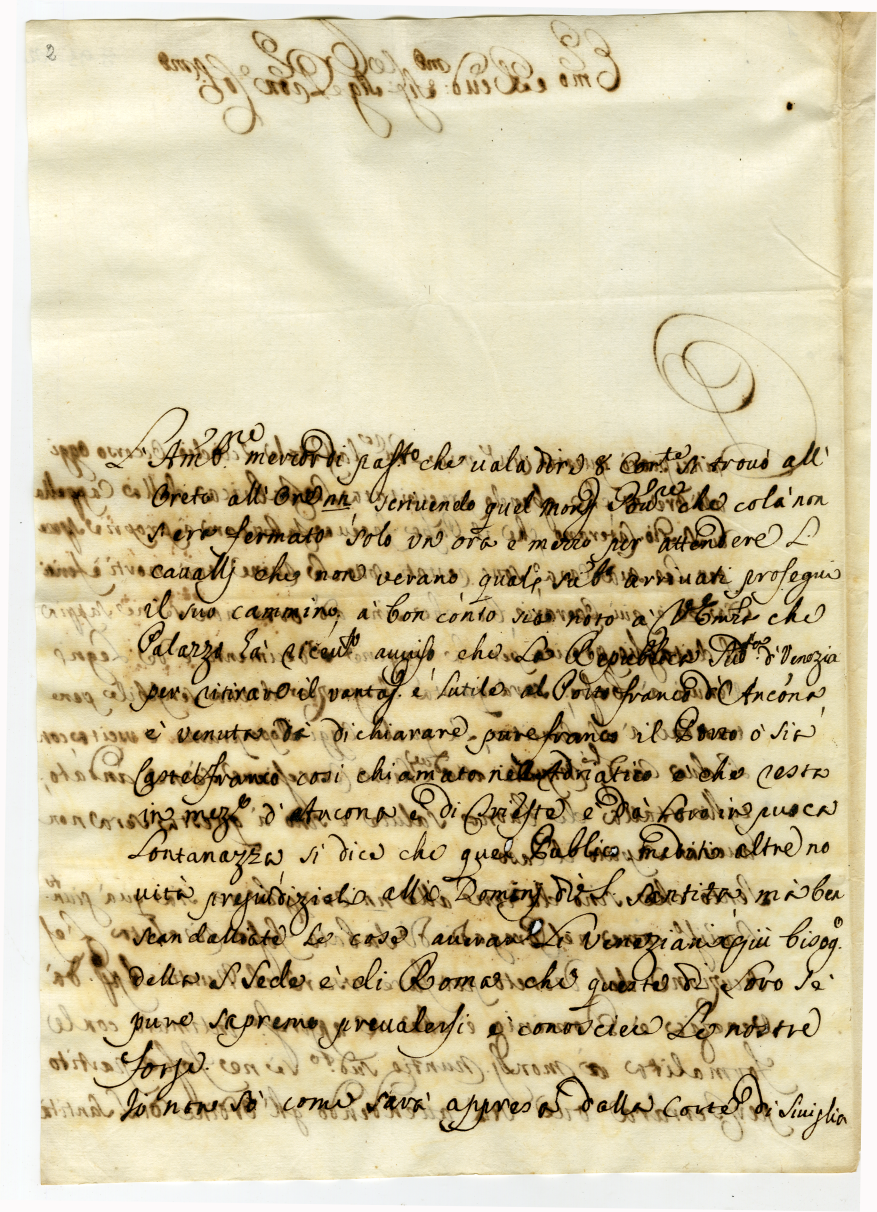 2
L'Amb.re mercordi pass.to che uala dire 8. Corr.te si trouò all'
Oreto all'Ore scriuendo quel mons. che colà non
s'era fermato solo vn ora e mezo per attendere L.
caualli che non verano quali sub.o arriuati prosegui
il suo cammino, à bon conto sia noto à V. Em.za che
Palazzo hà riceu.to auuiso che La Republica Sud.ta di Venezia
per ritirare il vantag. e L'utile al Porto franco d'Ancona
è venuta dà dichiarare pure franco il Porto ò sia
Castelfranco cosi chiamato nell'Adriatico e che resta
in mez.o d'Ancona e di Trieste e dà Loro in puoca
Lontanazza si dice che quel Publico mediti altre no
uità prejudiziali alli Dominj di S. Santità mà ben
scandaliate Le cose aueran Li Veneziani più bisog.o
della S. Sede e di Roma che queste di Loro se
pure sapremo preualersi e conosciere Le nostre
forze.
Io non sò come sarà appresa dalla Corte di Siuiglia